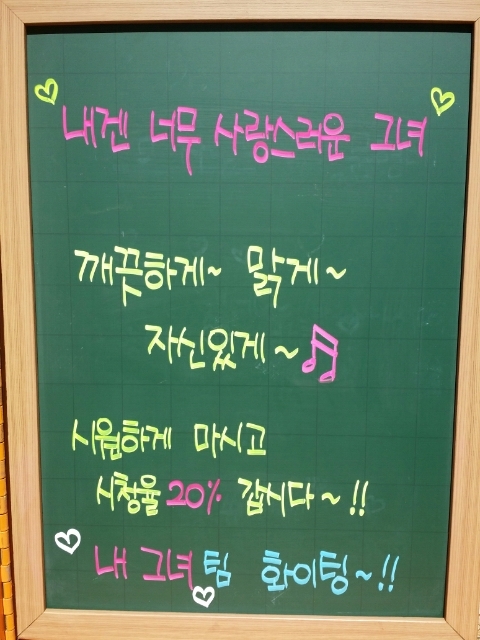 내겐 너무 사랑스러운 그녀
깨끗하게~ 맑게~
자신있게~
시원하게 마시고
시청율 20% 갑시다~!!
내 그녀 팀 화이팅~!!